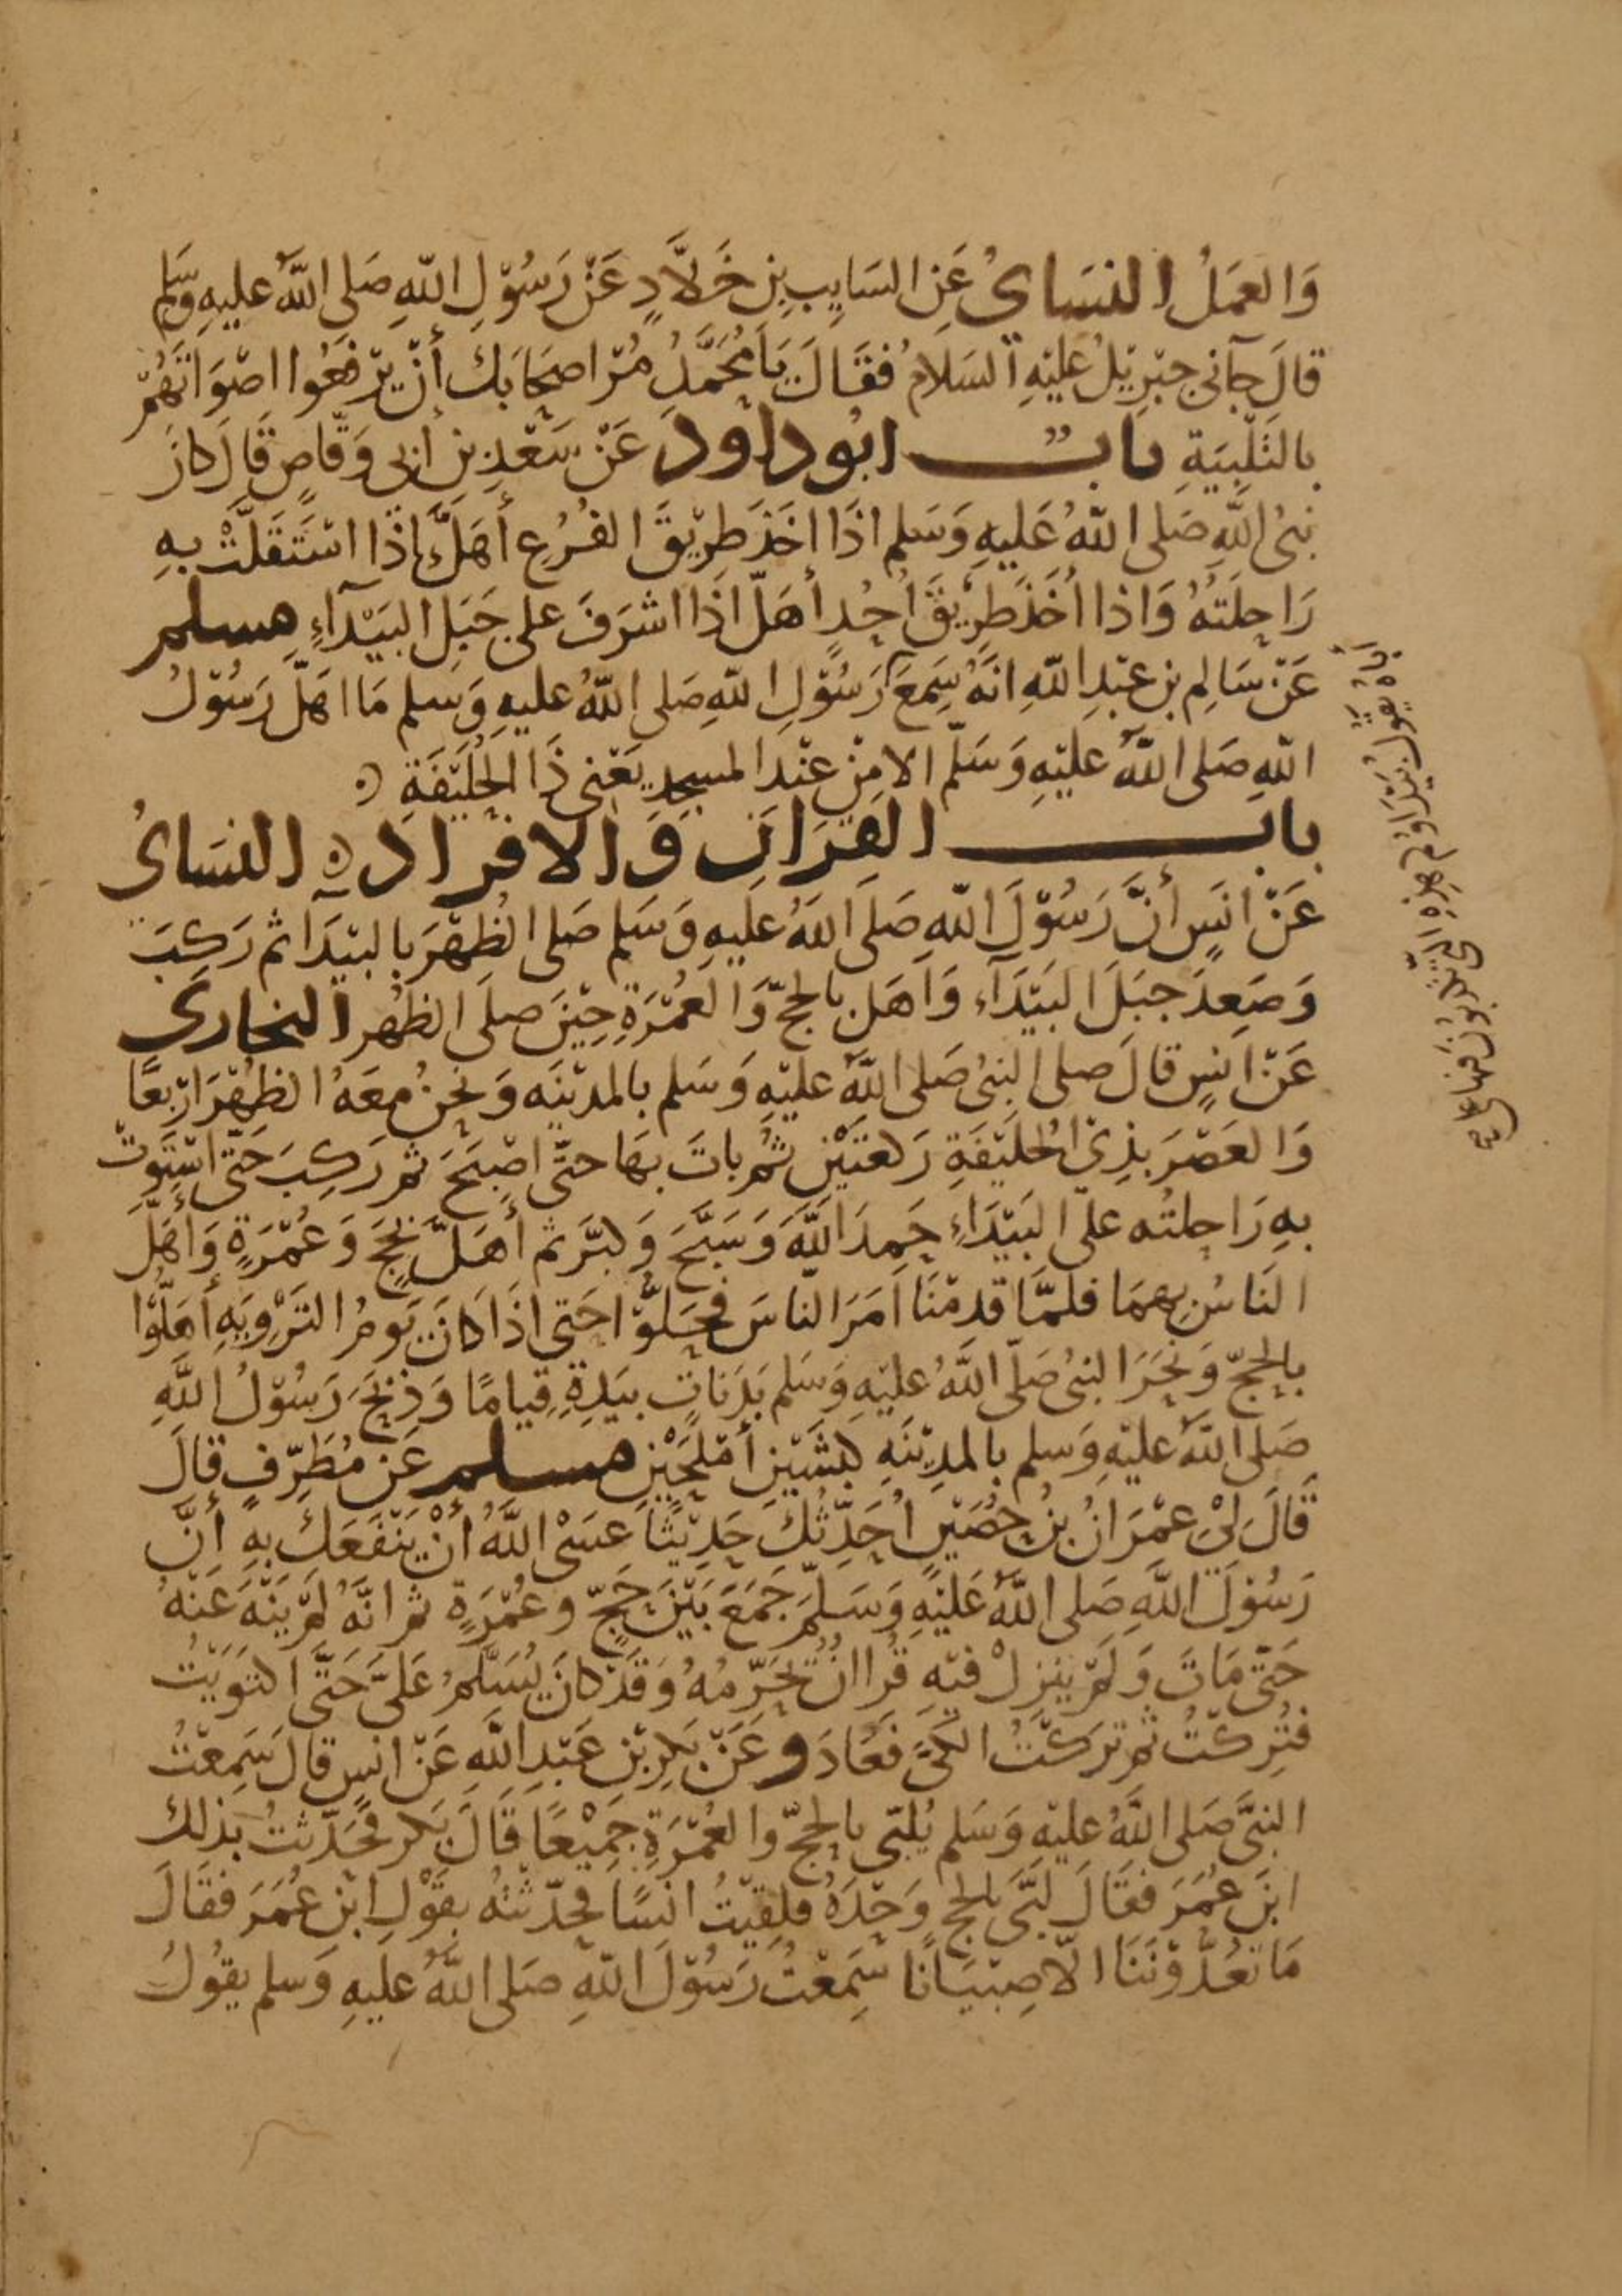 وَالعَمَلُ النسَايُ عَنِ السَايِبِ بنِ خَلاَّدٍ عَنْ رَسُوْلِ اللّهِ صَلى اللَّهُ عليهِ وَسَلم
قالَ جآنى جبْرِيْلُ عليْهِ السَلامُ فقَالَ يَا مُحَمَّدُ مُرْ اصحَابَكَ أنْ يرْفعُوا اصْوَاتَهُمْ
بالتَلْبيَةِ بابٌ ابوداود عَنْ سَعْدِ بنِ أبى وَقّاصٍ قَالَ كانَ
نبىُ اللَّهِ صَلى اللّهُ عَليهِ وَسَلم اذَا اخَذَ طرِيْقَ الفُرُعِ أهَلَّ اذَا اسْتَقَلَّتْ بهِ
رَاحِلَتُهُ وَاذا أخَذَ طرِيْقَ أُحُدٍ أهَلّ اذَا اشرَفَ على جَبَلِ البَيْدآءِ مسلم
عَنْ سَالِمِ بنِ عبْدِ اللّهِ انَهُ سَمِعَ رَسُوْلِ اللّهِ صَلى اللّهُ عليهِ وَسلم مَا اهَلّ رَسُوْلُ
اللّهِ صَلى اللَّهُ عليْهِ وَسَلّم الا مِنْ عنْد المسجِدِ يعْنى ذَا الحُليْفَةِ
باب القِرَانِ وَالافرَادِ النسَائُ
عَنْ انَسٍ أنَّ رَسُوْلَ اللّهِ صَلى اللهُ عليهِ وَسَلم صَلى الظهْرَ بالبيْدَآ ثم رَكِبَ
وَصَعِدَ جبَلَ البَيْدَآءِ وَاهَل بالحجّ وَالعُمْرَةِ حِيْنَ صلى الظهْر البخارى
عَنْ انسٍ قالَ صلى النبىُ صَلى اللَّهُ عليْهِ وَسَلم بالمديْنَه وَنحْنُ معَهُ الظهْرَ ارْبعًا
وَالعَصْرَ بذِىْ الحُليْفَةِ رَكعتَيْنِ ثُم باتَ بهَا حتّى اصْبَحَ ثم رَكِبَ حَتّى اسْتَوَتْ
بهِ رَاحِلتُه على البَيْدَاءِ حَمِدَ اللَّهَ وَسَبَّحَ وَكبَّرَ ثم أهَلَّ بحَجٍ وَعُمْرَةٍ وَأهَلَّ
النَاسُ بهمَا فلمَّا قدمْنَا امَرَ الناسَ فحَلوّا حَتى اذَا كانَ يَومُ الترْوِيَهِ أهَلُّوا
بالحجّ وَنحَرَ النبىُ صَلّى اللَّهُ عليْهِ وَسَلم بَدَناتٍ بيَدِهِ قِيامًا وَذبَحَ رَسُوْلُ اللَّهِ
صَلى اللَّهُ عليْهِ وَسلم بالمدِيْنَهِ كبْشَيْنِ أمْلحَيْنِ مسلم عَنْ مُطَرِّفٍ قالَ
قَالَ لىْ عمْرَانُ بنُ حُصَيْنٍ اُحَدِّثُكَ حَدِيْثًا عسَىْ اللَّهُ أنْ يَنْفَعَكَ بهِ أنَّ
رَسُوْلَ اللَّهِ صَلى اللَّهُ عَليْهِ وَسَلَّمَ جَمَعَ بَيْنَ حَجٍّ وعُمْرَةٍ ثم انَّهُ لمْ يَنْهَ عَنْهُ
حَتّى مَاتَ وَلمْ ينزلْ فيْهِ قُراانٌ يُحَرّمُهُ وَقَدْ كانَ يُسَلَّمُ عَلىَّ حَتَّى اكتوَيْتُ
فتُرِكْتُ ثم ترَكتُ الكىَّ فعَادَ وعَنْ بكرِ بْنِ عَبْدِ اللَّهِ عَنْ انسٍ قالَ سَمِعْتُ
النبىَّ صَلى اللَّهُ عليْهِ وَسَلم يُلبّى بالحجّ وَالعُمْرَةِ جَمِيْعًا قَالَ بَكر فحَدّثتُ بذلك
ابنَ عُمَرَ فقَالَ لَبَّى بالحج وَحْدَهُ فلقِيْتُ انسًا فحدّثتُهُ بقَوْلِ ابْنِ عُمَرَ فقَالَ
مَا تعُدُّوْنَنَا الّا صِبْيَانًا سَمِعْتُ رَسُوْلَ اللّهِ صَلى اللَّهُ عليهِ وَسلم يقُولُ
أباهُ يقولُ بيْدَاؤكم هذِهِ التى تكذبُونَ فيها على